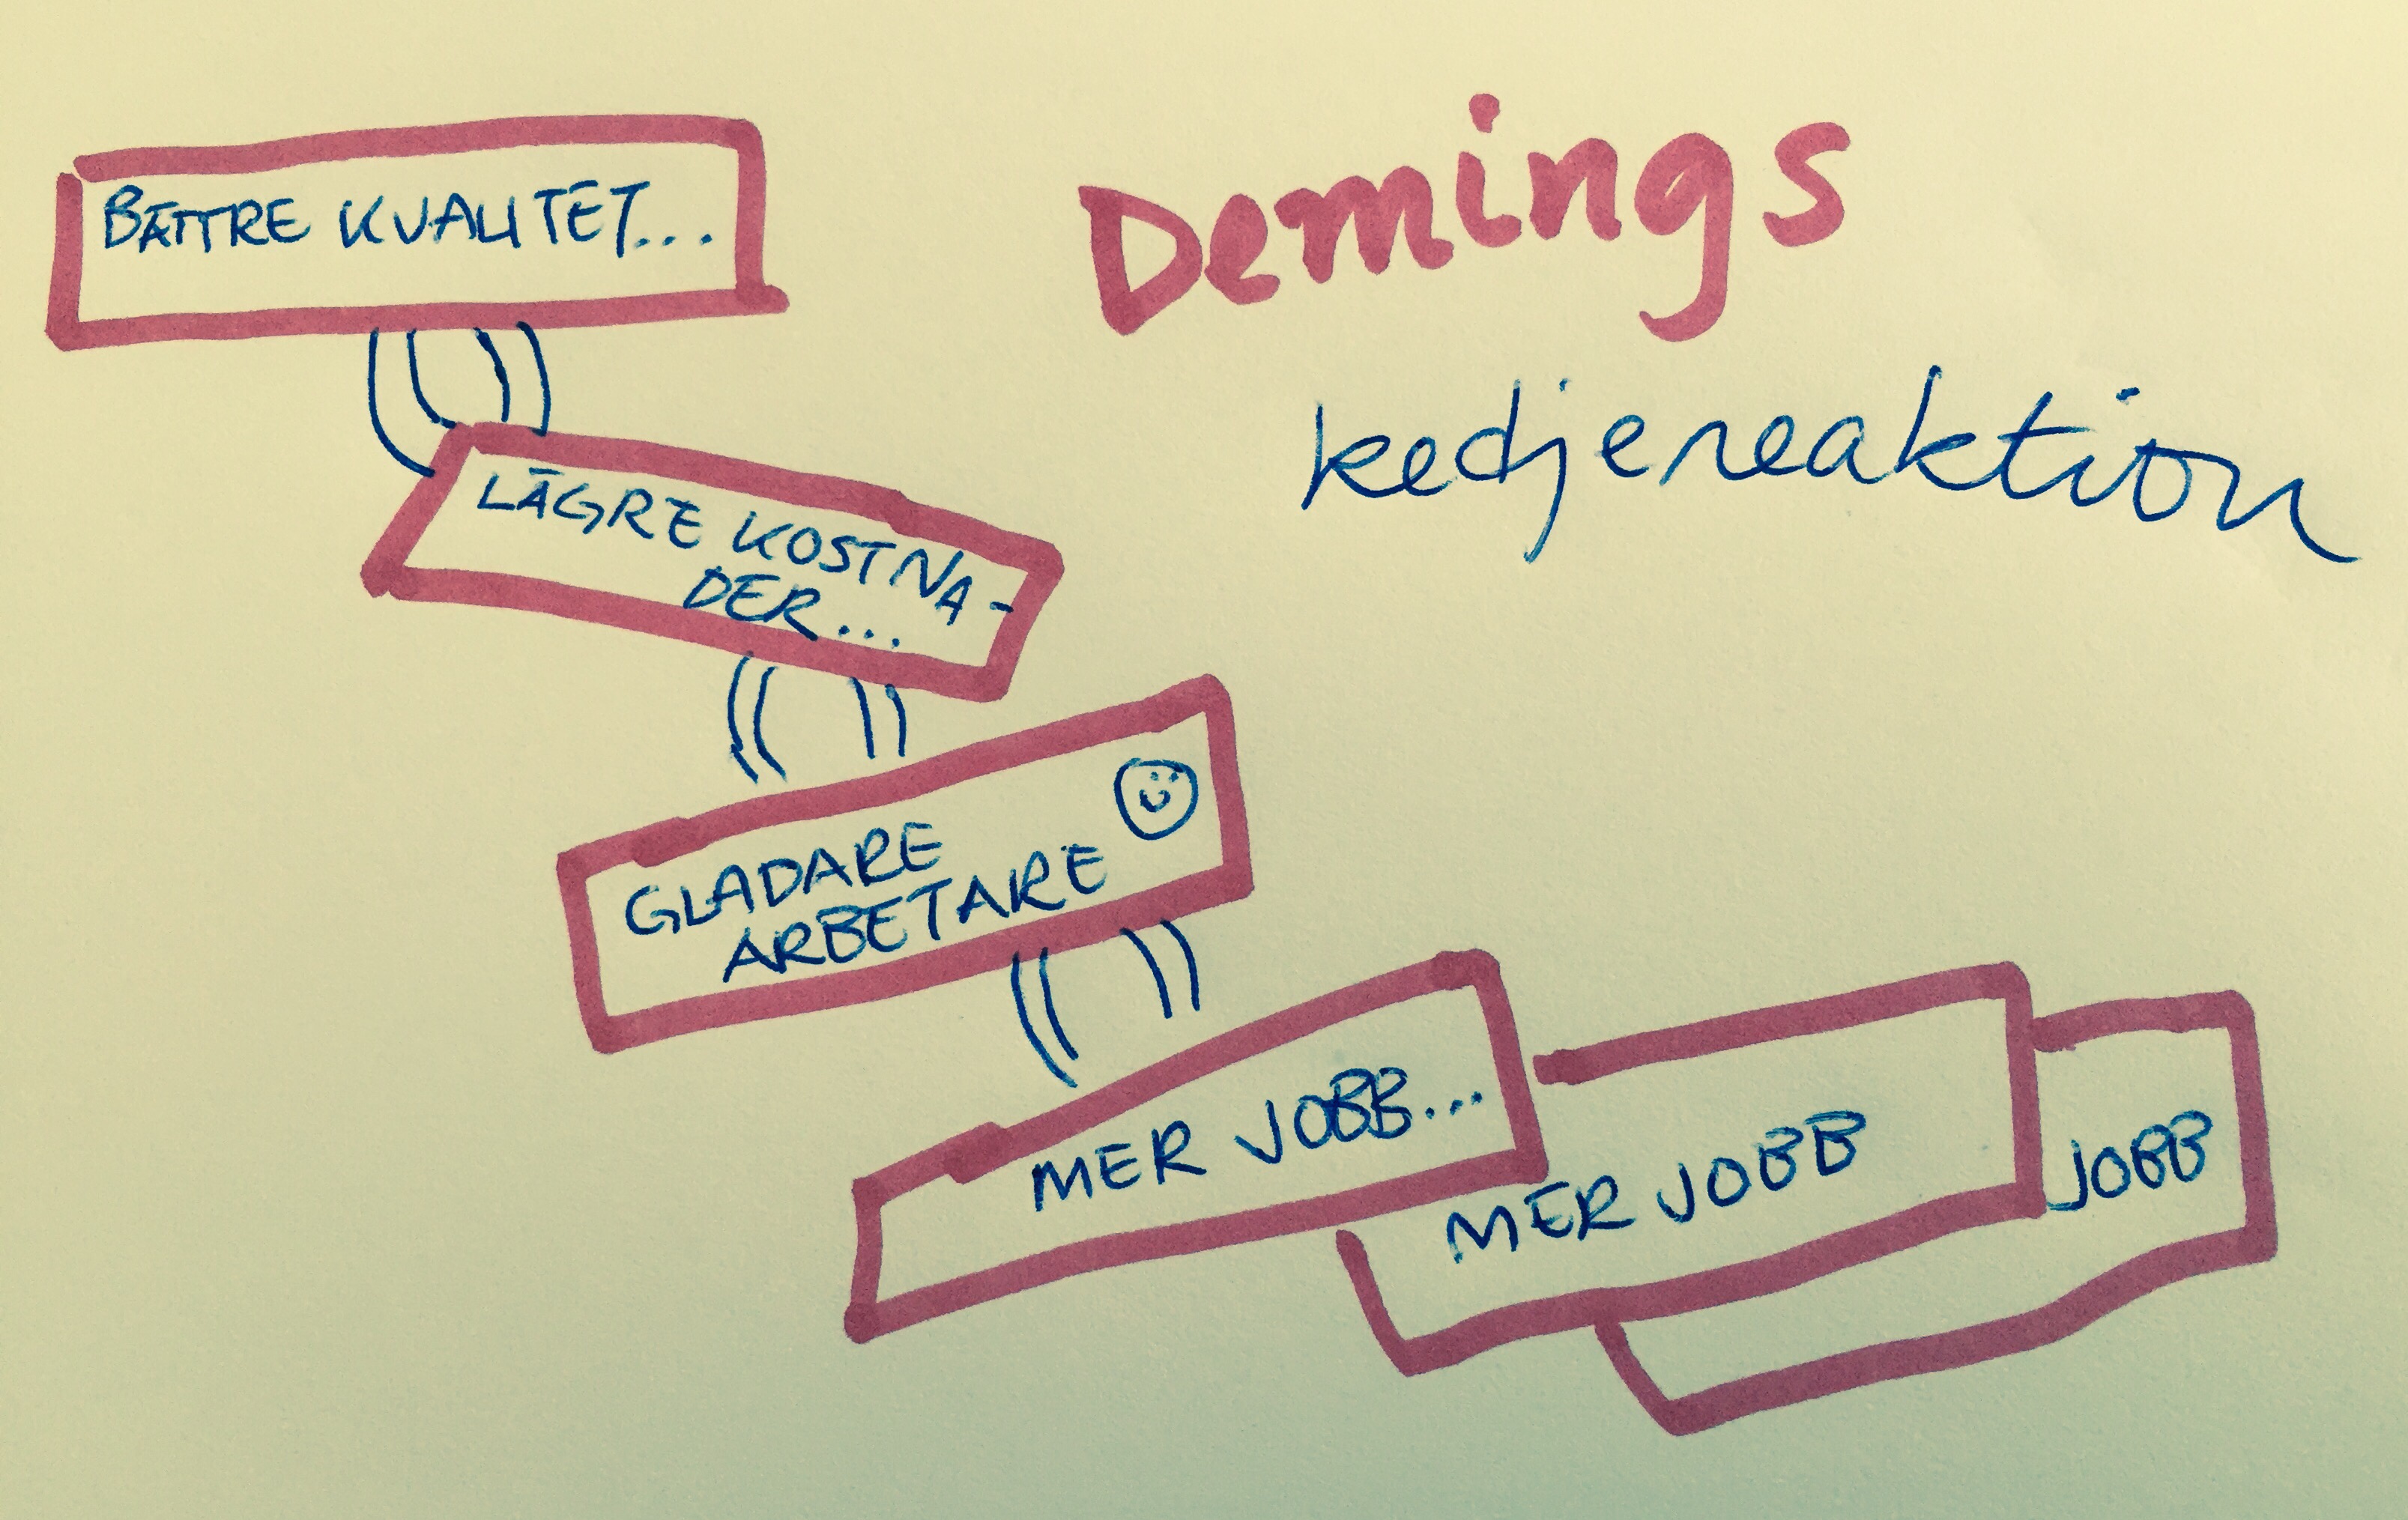 Demings
kedjereaktion
BÄTTRE KVALITET...
LÄGRE KOSTNA-
DER...
GLADARE
ARBETARE
MER JOBB...
MER JOBB
JOBB